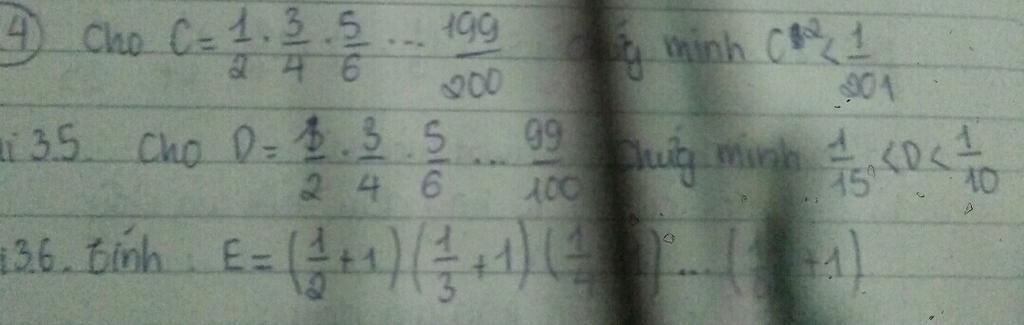 4 Cho C = 1/2 . 3/4 . 5/6 ... 199/200 minh C² < 1/201
i 35. Cho D = 1/2 . 3/4 . 5/6 ... 99/100 Chứg minh 1/15 < D < 1/10
i 36. tính E = (1/2 + 1) (1/3 + 1) (1/4 1) ... ( + 1)